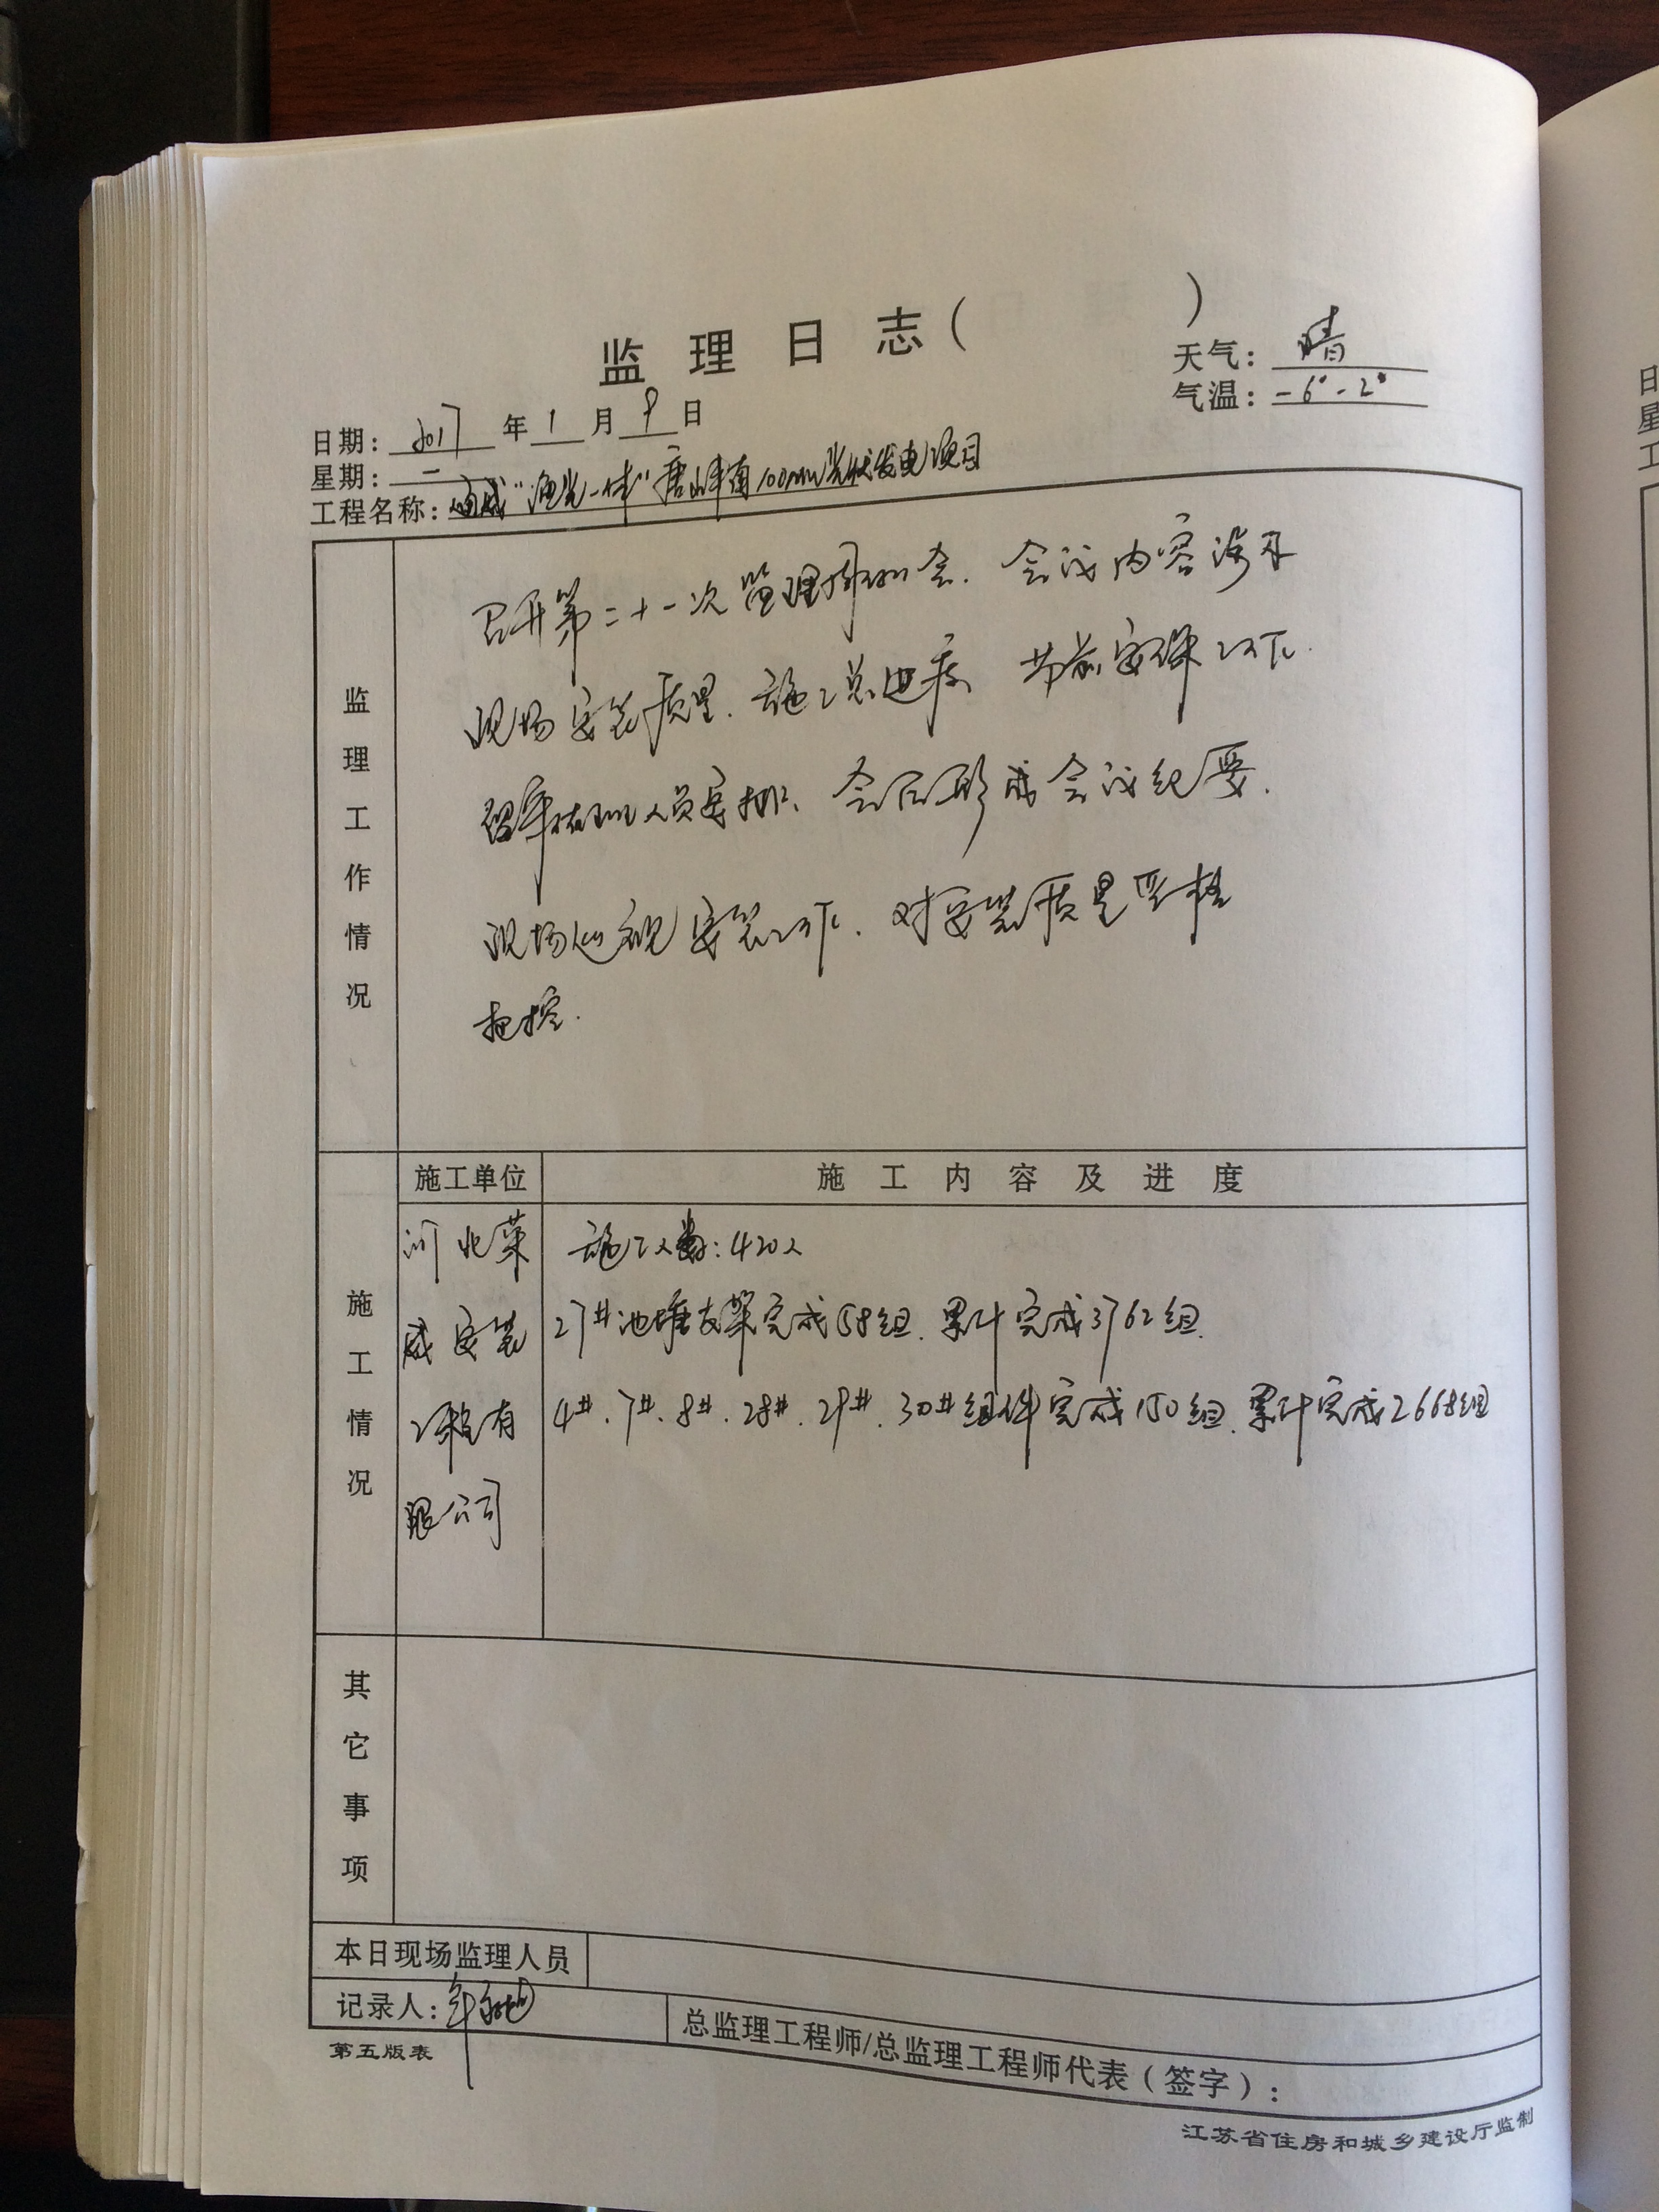 监理日志（ ）
天气：晴
气温：-6°-2°
日期：2017年1月9日
星期：一
工程名称：通威“渔光一体”唐山丰南100MW光伏发电项目
监理工作情况
召开第二十一次监理例会．会议内容涉及
现场安装质量．施工总进度 节前安保工作．
留守值班人员安排、会后形成会议纪要．
现场巡视安装工作．对安装质量严格
把控．
施工单位 施工内容及进度
施工情况
河北 施工人数：420人
安装 27#池塘支架完成58组．累计完成3762组．
工程有 4#．7#．8#．28#．29#．30#组件完成150组．累计完成2668组
限公司
其它事项
本日现场监理人员
记录人：
总监理工程师/总监理工程师代表（签字）：
第五版表
江苏省住房和城乡建设厅监制